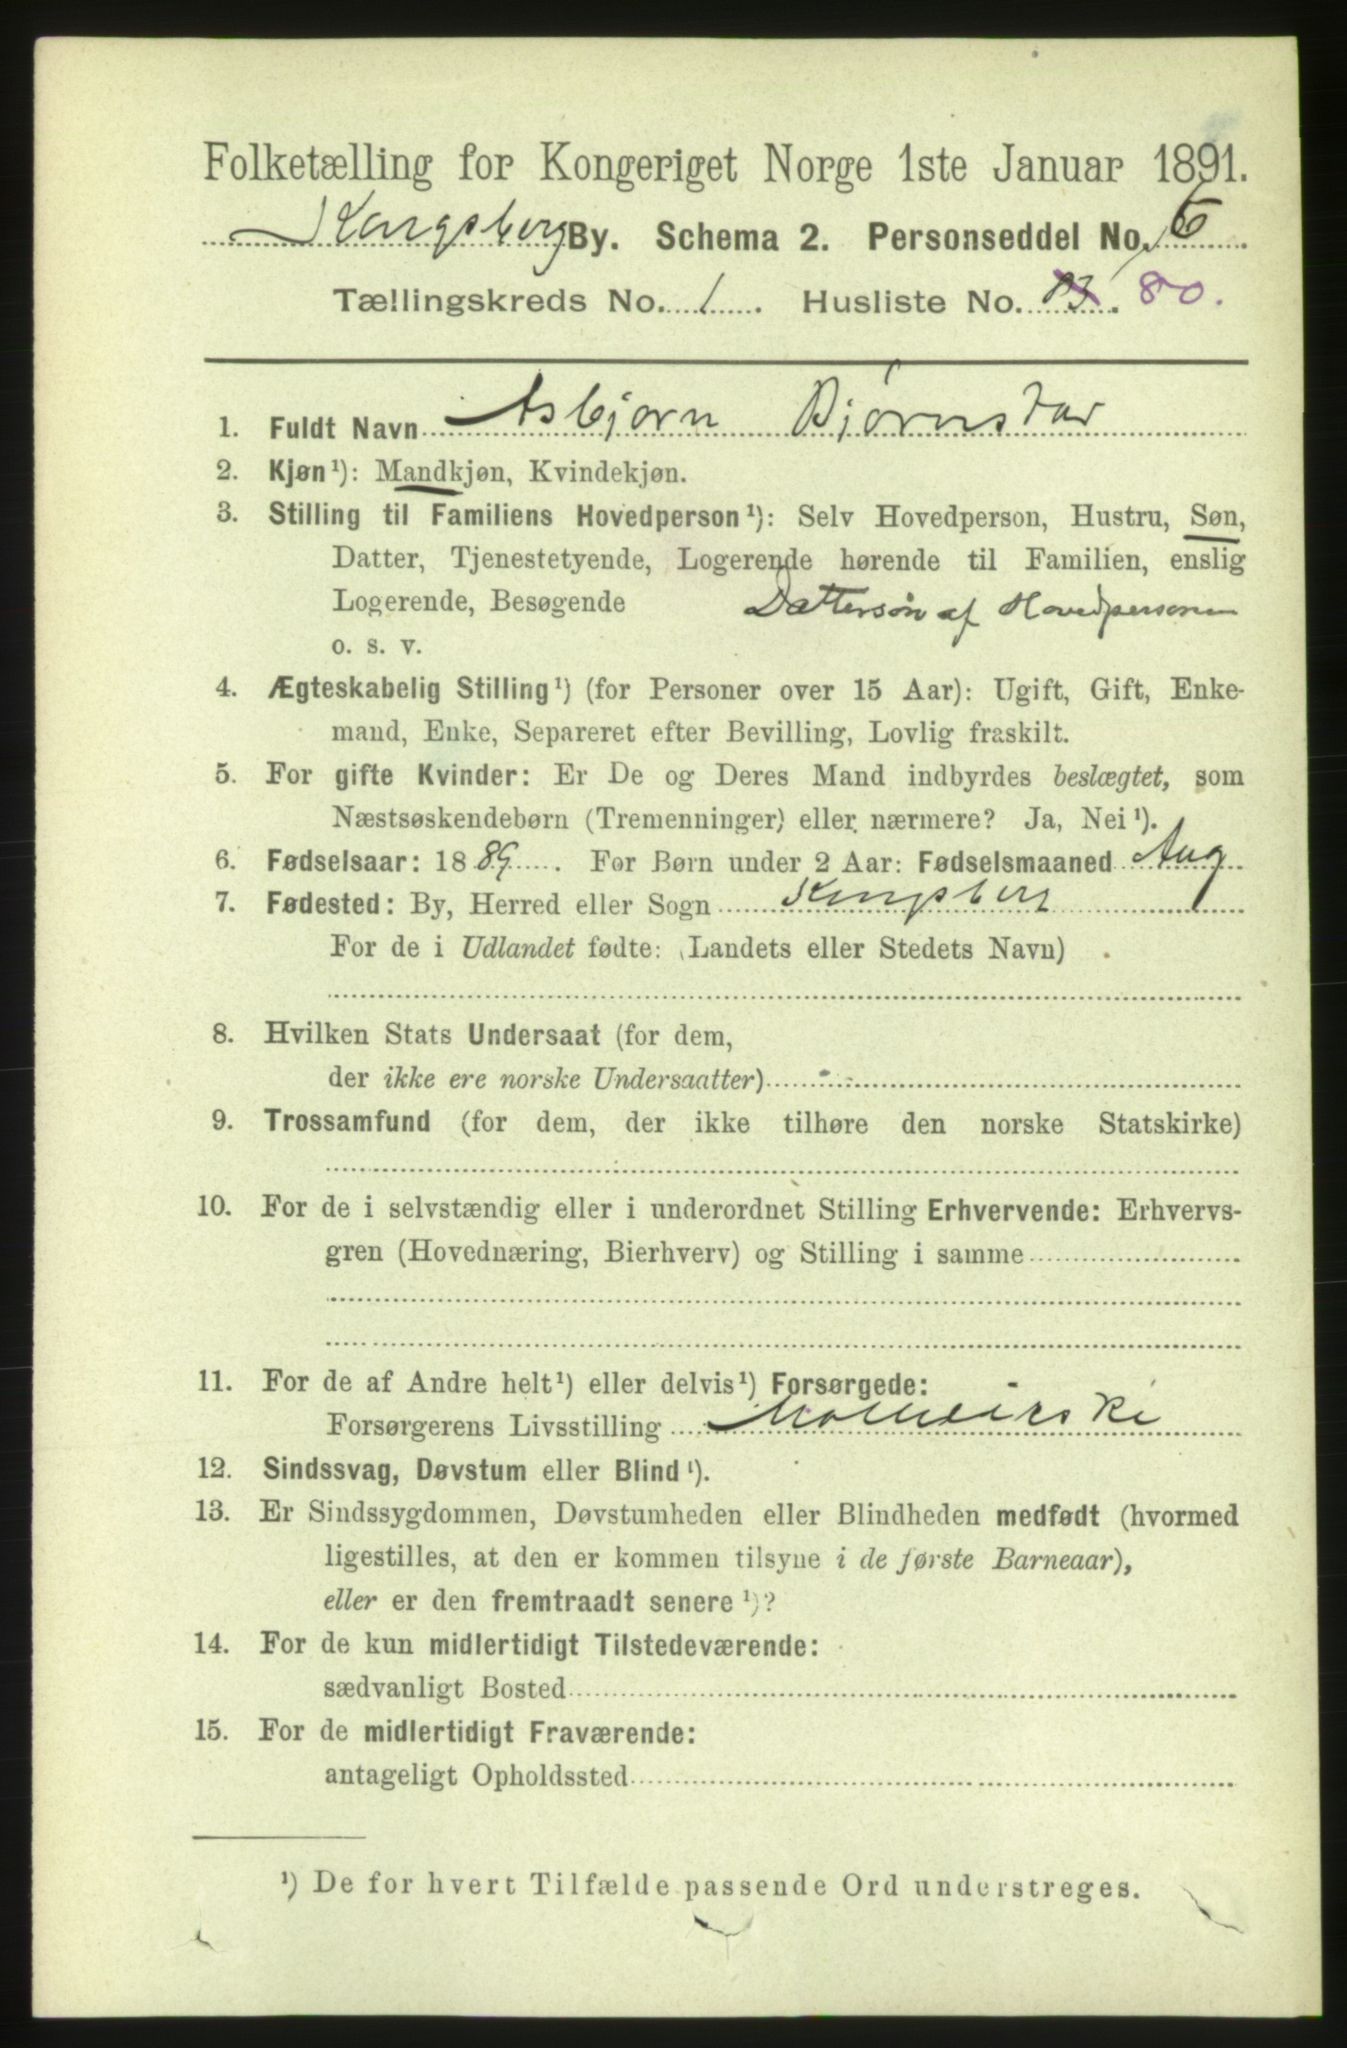 Folketælling for Kongeriget Norge 1ste Januar 1891.
Kongsberg By. Schema 2. Personseddel No. 6
Tællingskreds No. 1. Husliste No. 83. 80.
1. Fuldt Navn Asbjørn Bjørnstar
2. Kjøn¹): Mandkjøn, Kvindekjøn.
3. Stilling til Familiens Hovedperson¹): Selv Hovedperson, Hustru, Søn,
Datter, Tjenestetyende, Logerende hørende til Familien, enslig
Logerende, Besøgende Dattersøn af Hovedpersonen
o. s. v.
4. Ægteskabelig Stilling¹) (for Personer over 15 Aar): Ugift, Gift, Enke-
mand, Enke, Separeret efter Bevilling, Lovlig fraskilt.
5. For gifte Kvinder: Er De og Deres Mand indbyrdes beslægtet, som
Næstsøskendebørn (Tremenninger) eller nærmere? Ja, Nei¹).
6. Fødselsaar: 1889. For Børn under 2 Aar: Fødselsmaaned Aug
7. Fødested: By, Herred eller Sogn Kongsberg
For de i Udlandet fødte: (Landets eller Stedets Navn)
8. Hvilken Stats Undersaat (for dem,
der ikke ere norske Undersaatter)
9. Trossamfund (for dem, der ikke tilhøre den norske Statskirke)
10. For de i selvstændig eller i underordnet Stilling Erhvervende: Erhvervs-
gren (Hovednæring, Bierhverv) og Stilling i samme
11. For de af Andre helt¹) eller delvis¹) Forsørgede:
Forsørgerens Livsstilling
12. Sindssvag, Døvstum eller Blind¹).
13. Er Sindssygdommen, Døvstumheden eller Blindheden medfødt (hvormed
ligestilles, at den er kommen tilsyne i de første Barneaar),
eller er den fremtraadt senere¹)?
14. For de kun midlertidigt Tilstedeværende:
sædvanligt Bosted
15. For de midlertidigt Fraværende:
antageligt Opholdssted
¹) De for hvert Tilfælde passende Ord understreges.